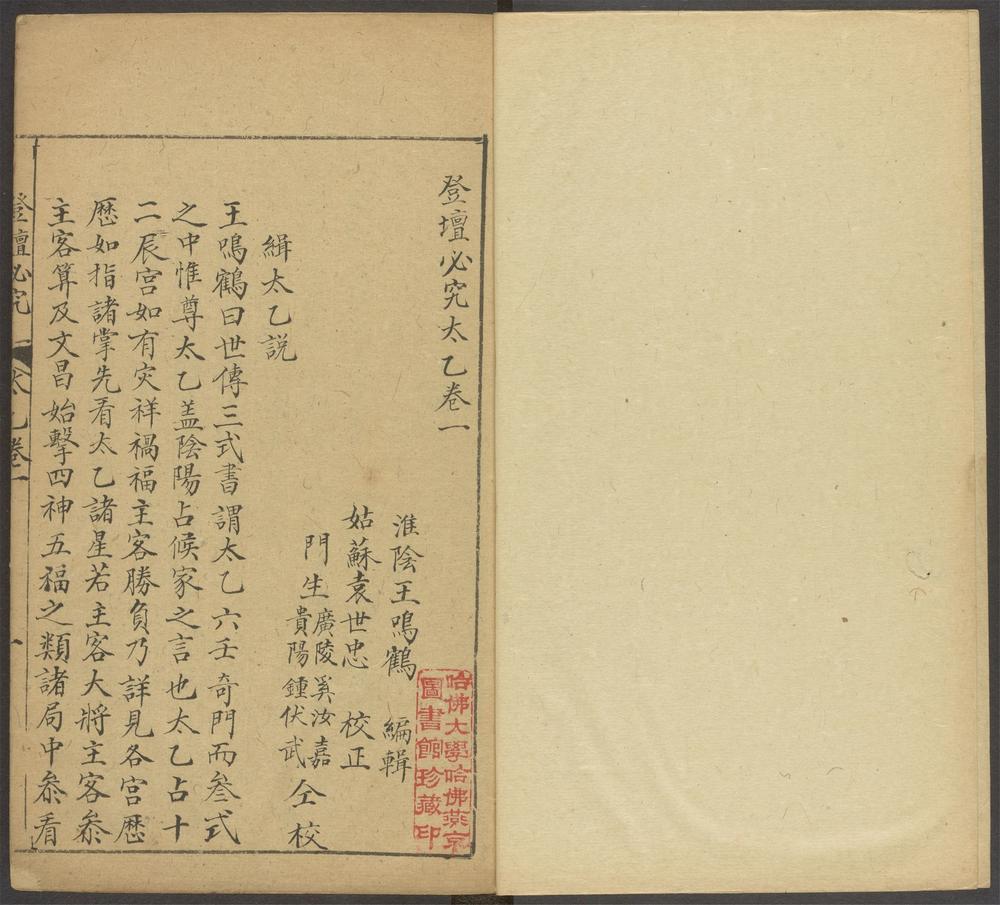 登壇必究太乙卷一
淮陰王鳴鶴　編輯
姑蘇袁世忠　校正
門生廣陵奚汝嘉
貴陽鍾伏武　仝校
緝太乙説
王鳴鶴曰世傳三式書謂太乙六壬奇門而叁式
之中惟尊太乙盖陰陽占候家之言也太乙占十
二辰宫如有灾祥禍福主客勝負乃詳見各宫歷
歷如指諸掌先看太乙諸星若主客大將主客叅
主客算及文昌始擊四神五福之類諸局中叅看
登壇必究　太乙卷一　一
哈佛大學哈佛燕京
圖書館珍藏印